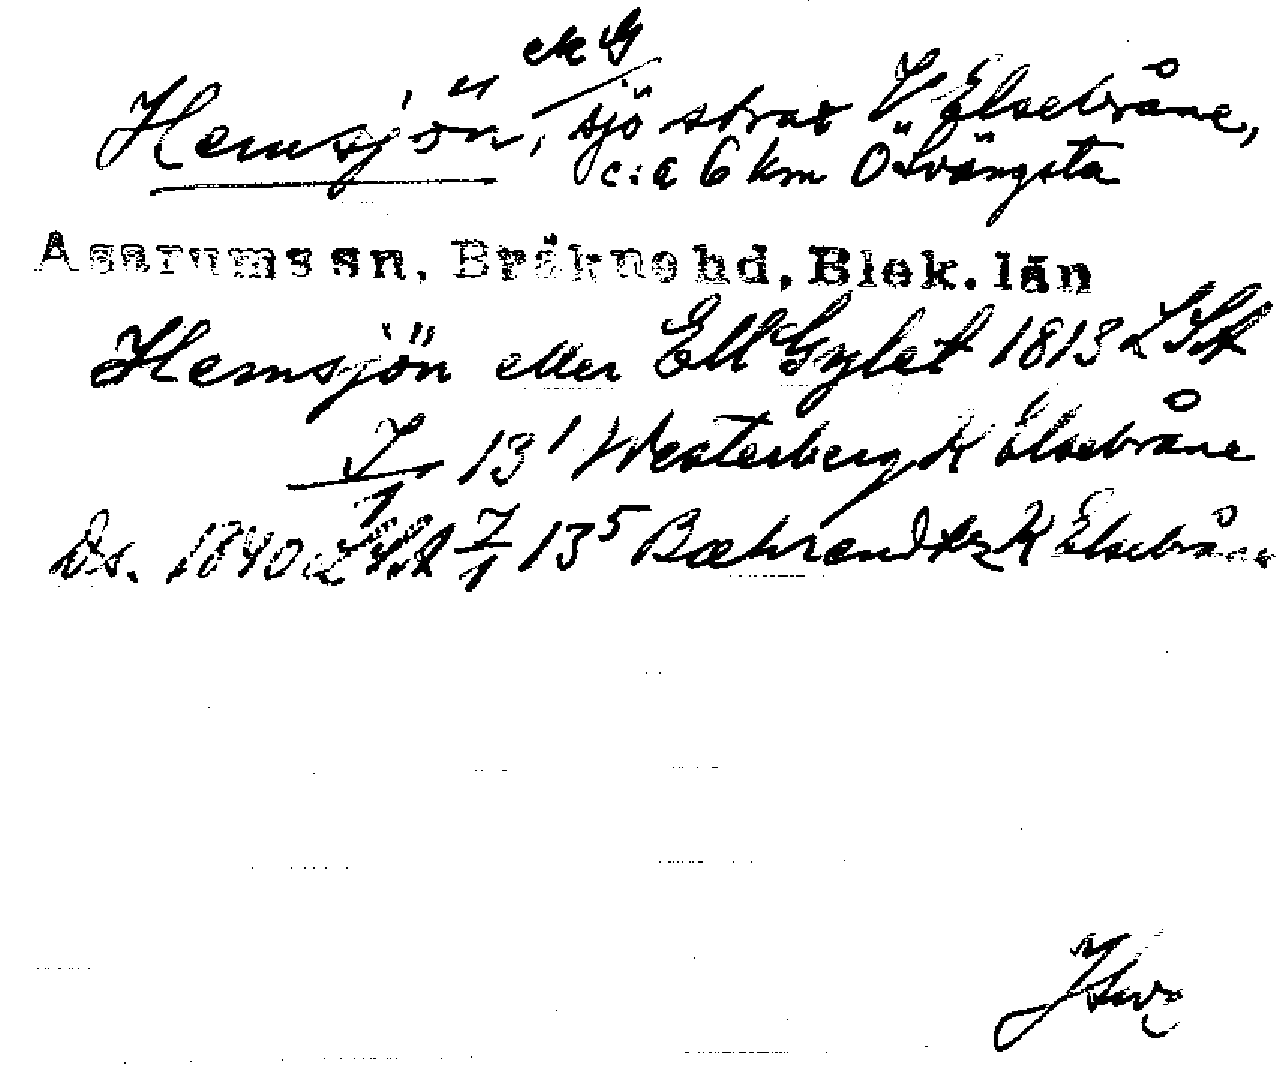 ek G
Hemsjön, sjö strax V Elsebråne,
c:a 6 km O Svängsta
Asarums sn, Bräkne hd, Blek. län
Hemsjön eller Ell Gylet 1813 L St
13 Westerberg K Elsebråne
Ds. 1840 13 5 Bæhrendtz K Elsebråne